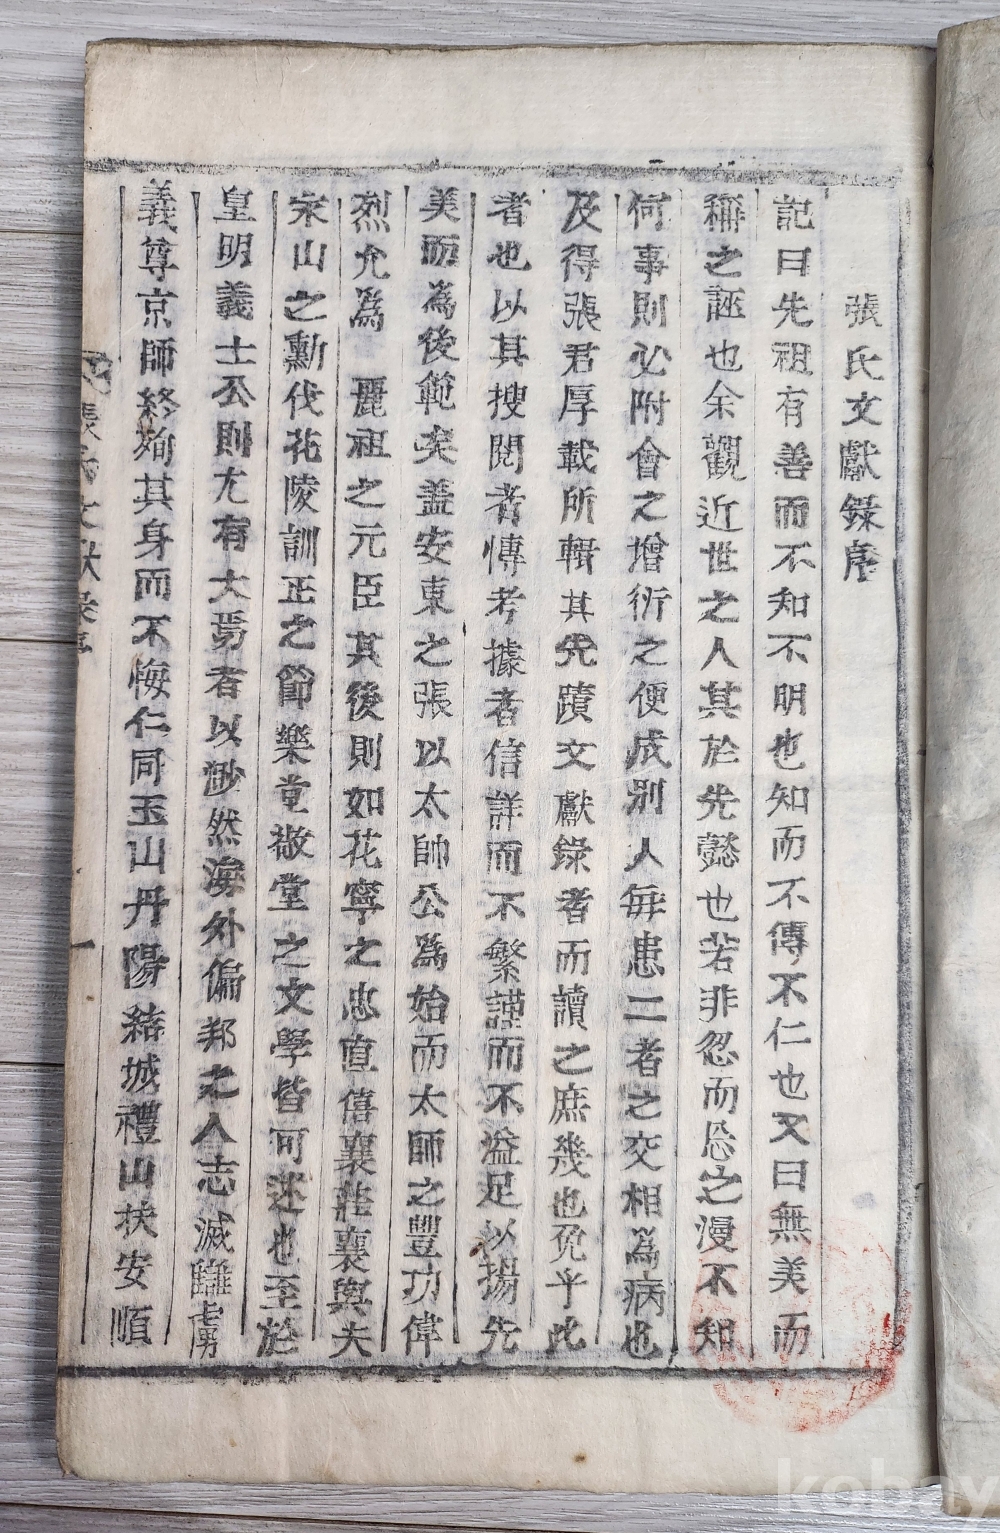 張氏文獻錄序
記曰先祖有善而不知不明也知而不傳不仁也又曰無美而
稱之誣也余觀近世之人其於先懿也若非忽而忘之漫不知
何事則必附會之增衍之便成別人每患二者之交相爲病也
及得張君厚載所輯其先蹟文獻錄者而讀之庶幾也免乎此
者也以其搜閱者慱考據者信詳而不繁謹而不溢足以揚先
美而為後範矣盖安東之張以太帥公爲始而太師之豐功偉
烈允為 麗祖之元臣其後則如花寧之忠直僖襄莊襄與夫
永山之勳伐花陵訓正之節樂堂敬堂之文學皆可述也至於
皇明義士公則尤有大焉者以渺然海外偏邦之人志滅讎虜
義尊京師終殉其身而不悔仁同玉山丹陽結城禮山扶安順
張氏文獻錄序 一
kobay